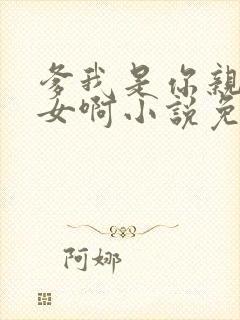 爹我是你親
女啊小說免
阿娜